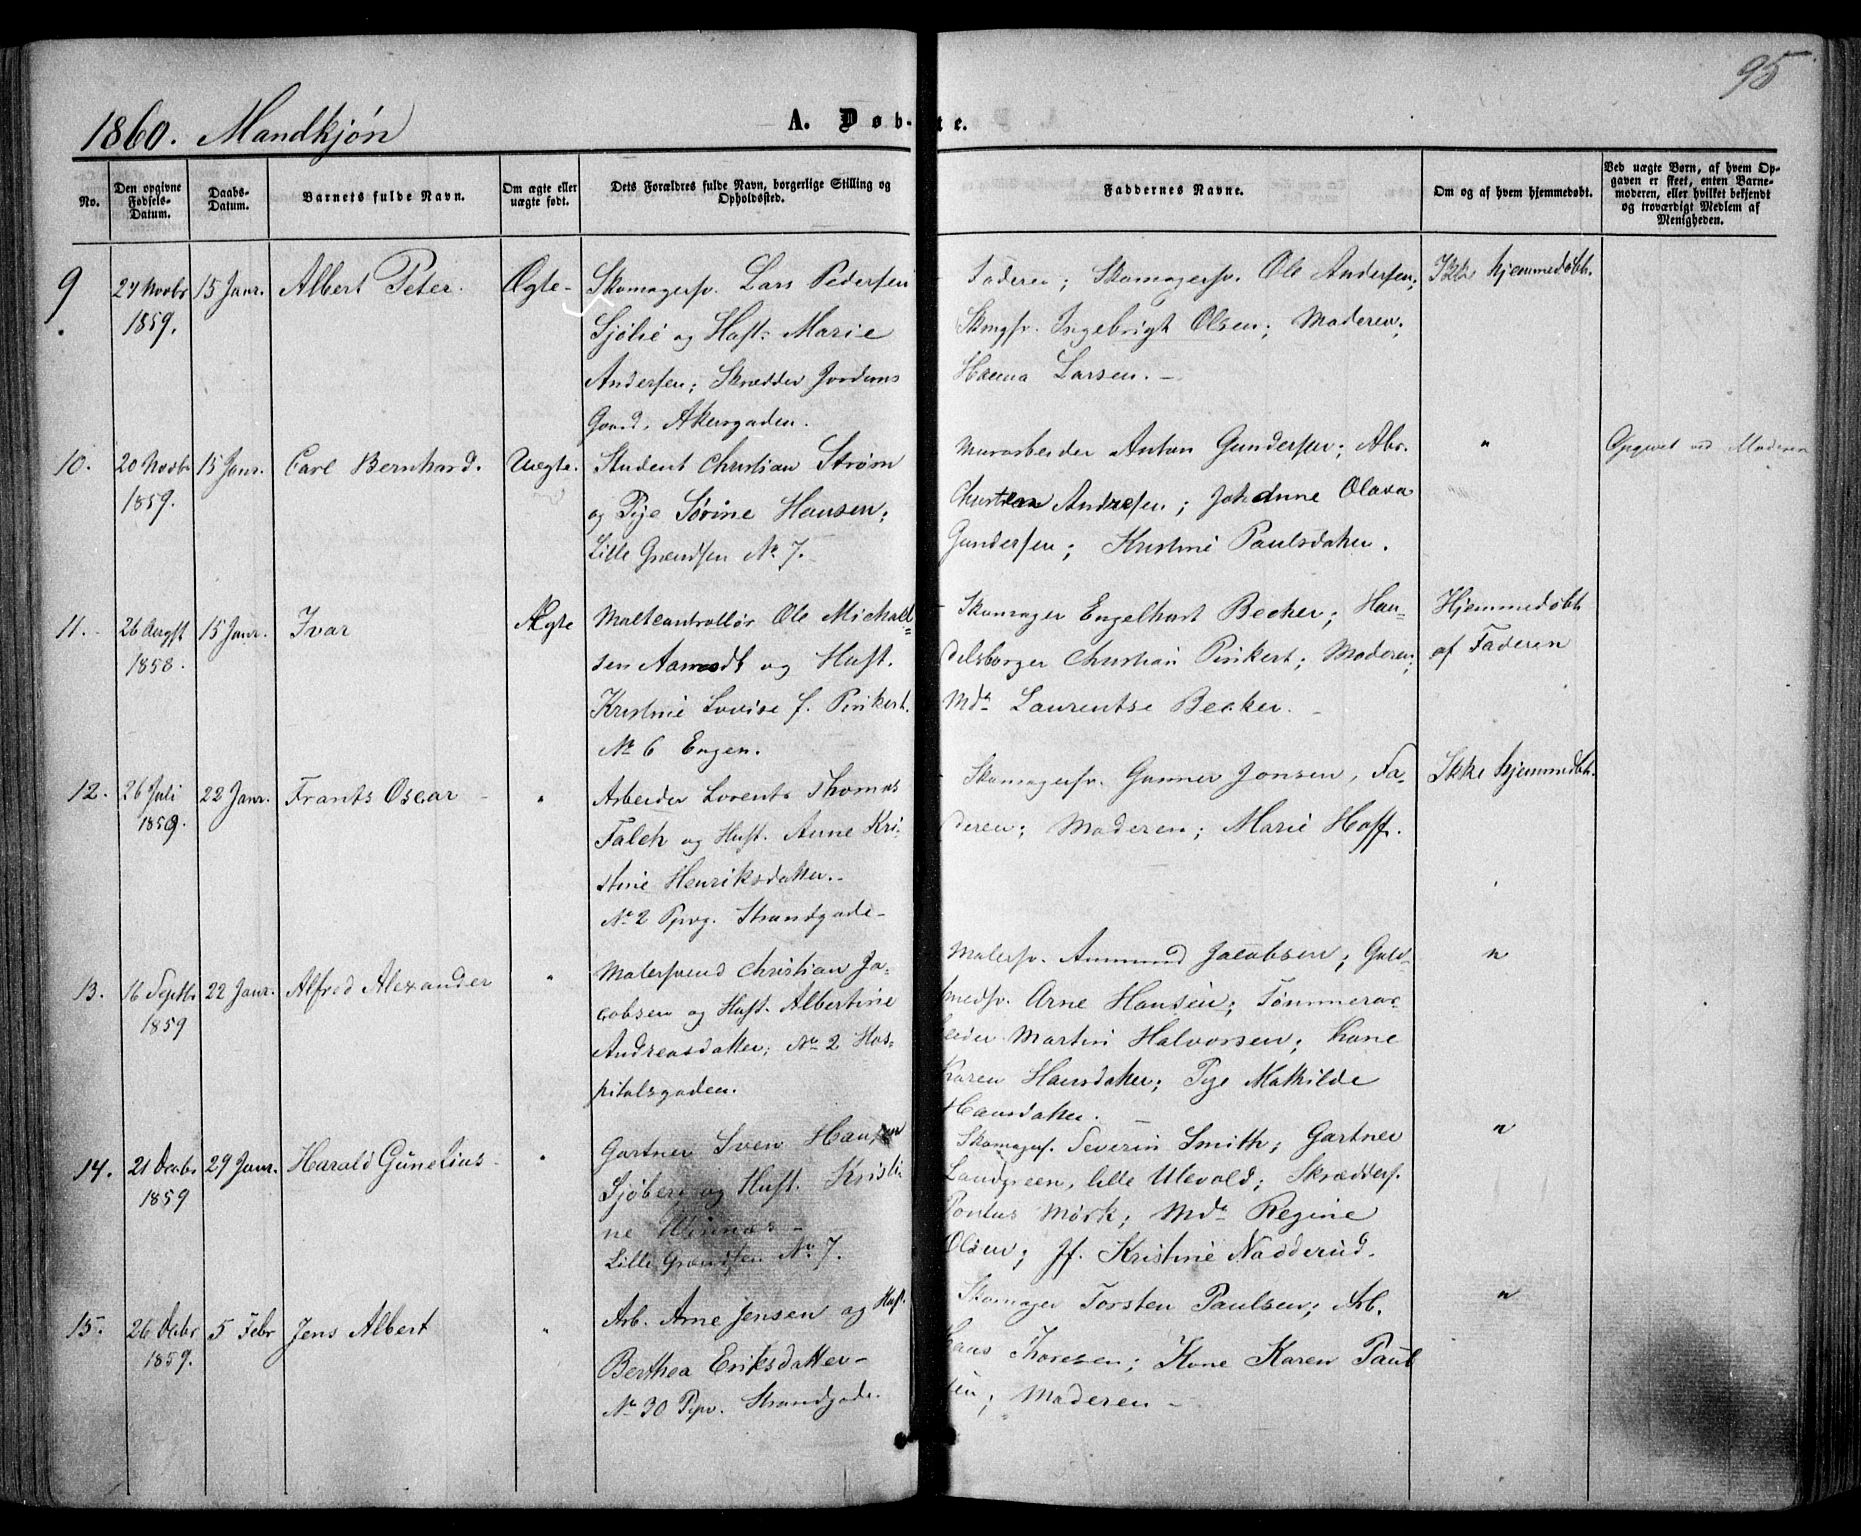 95
1860. Mandkjøn
A. Døb- te.
No.
Den opgivne Fødsels-Datum.
Daabs-Datum.
Barnets fulde Navn.
Om ægte eller uægte født.
Dets Forældres fulde Navn, borgerlige Stilling og Opholdssted.
Faddernes Navne.
Om og af hvem hjemmedøbt.
Ved uægte Børn, af hvem Opgaven er skeet, enten Barnemoderen, eller hvilket bekjendt og troværdigt Medlem af Menigheden.
9. 27 Novbr 1859. 15 Janr. Albert Peter. Ægte-
Skomagersv. Lars Pedersen
Sjølie og Hust: Marie
Andersen; Skrædder Jordans
Gaard, Akersgaden.
Faderen; Skomagersv. Ole Andersen;
Skmgsv. Ingebrigt Olsen; Moderen;
Hanna Larsen. -
Ikke hjemmedøbt.
10. 20 Novbr 1859. 15 Janr. Carl Bernhard. Uægte.
Student Christian Strøm
og Pige Sørine Hansen;
Lille Grændsen No 7.
Murarbeider Anton Gundersen; Arb.
Christian Andresen; Johanne Olava
Gundersen; Kristine Paulsdatter.
"
Opgivet ved Moderen
11. 26 Augst 1858. 15 Janr. Ivar Ægte
Maltcontrollør Ole Michael=
sen Aamodt og Hust.
Kristine Lovise f. Pinkert.
No 6 Engen.
Skomager Engelhart Becker; Han=
delsborger Christian Pinkert; Moderen;
Mda Laurentse Becker. -
Hjemmedøbt
af Faderen
12. 26 Juli 1859. 22 Janr. Frants Oscar - "
Arbeider Lorents Thomas
Falch og Hust. Anne Kri-
stine Henriksdatter.-
No 2 Ppvg. Strandgade-
Skomagersv. Gunner Jonsen, Fa-
deren; Moderen; Marie Hoff.
Ikke hjemmedøbt.
13. 16 Septbr 1859 22 Janr. Alfred Alexander "
Malersvend Christian Ja-
cobsen og Hust. Albertine
Andreasdatter; No 2 Hos-
pitalsgaden.
Malersv. Ammund Jacobsen; Guld-
smedsv. Arne Hansen; Tømmerar-
beider Martin Halvorsen; Kone
Karen Hansdatter; Pige Mathilde
Hansdatter. -
"
14. 21 Decbr 1859 29 Janr. Harald Gunelius - "
Gartner Sven Hansen
Sjøberg og Hust. Kristi-
ne
Lille Grændsen No 7.
Skomagers. Severin Smith; Gartner
Landgreen, lille Ulevold; Skræddersv.
Pontus Mørk; Mda Regine
Olsen; Jf. Kristine Nadderud.
"
15. 26 Decbr 1859. 5 Febr Jens Albert "
Arb. Arne Jensen og Hust.
Berthea Eriksdatter-
No 30 Ppv. Strandgade.
Skomager Torsten Paulsen; Arb.
Hans Thoresen; Kone Karen Paul
sen; Moderen -
"